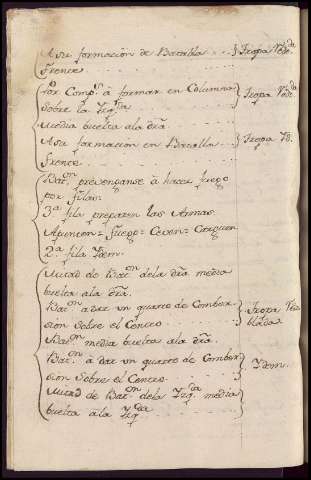 A su formación de Batalla } Tropa
Frente
Por Comp.s á formar en Columna } Tropa
sobre la Izq.da
media buelta ala dra
A su formacion en Batalla } Tropa Yd.
frente
Bat.on prevenganse á hacer fuego
por filas
3.a fila preparen las Armas
Apunten = fuego = Ceven = Carguen
2.a fila Ydem.
Mitad de Bat.on dela dra media
buelta ala dra.
Bat.on a dar un quarto de Comber } Tropa
sion Sobre el Centro
Bat.on media buelta ala dra.
Bat.on á dar un quarto de Comber } Ydem.
sion Sobre el Centro
Mitad de Bat.on dela Izq.da media
buelta ala Izq.da